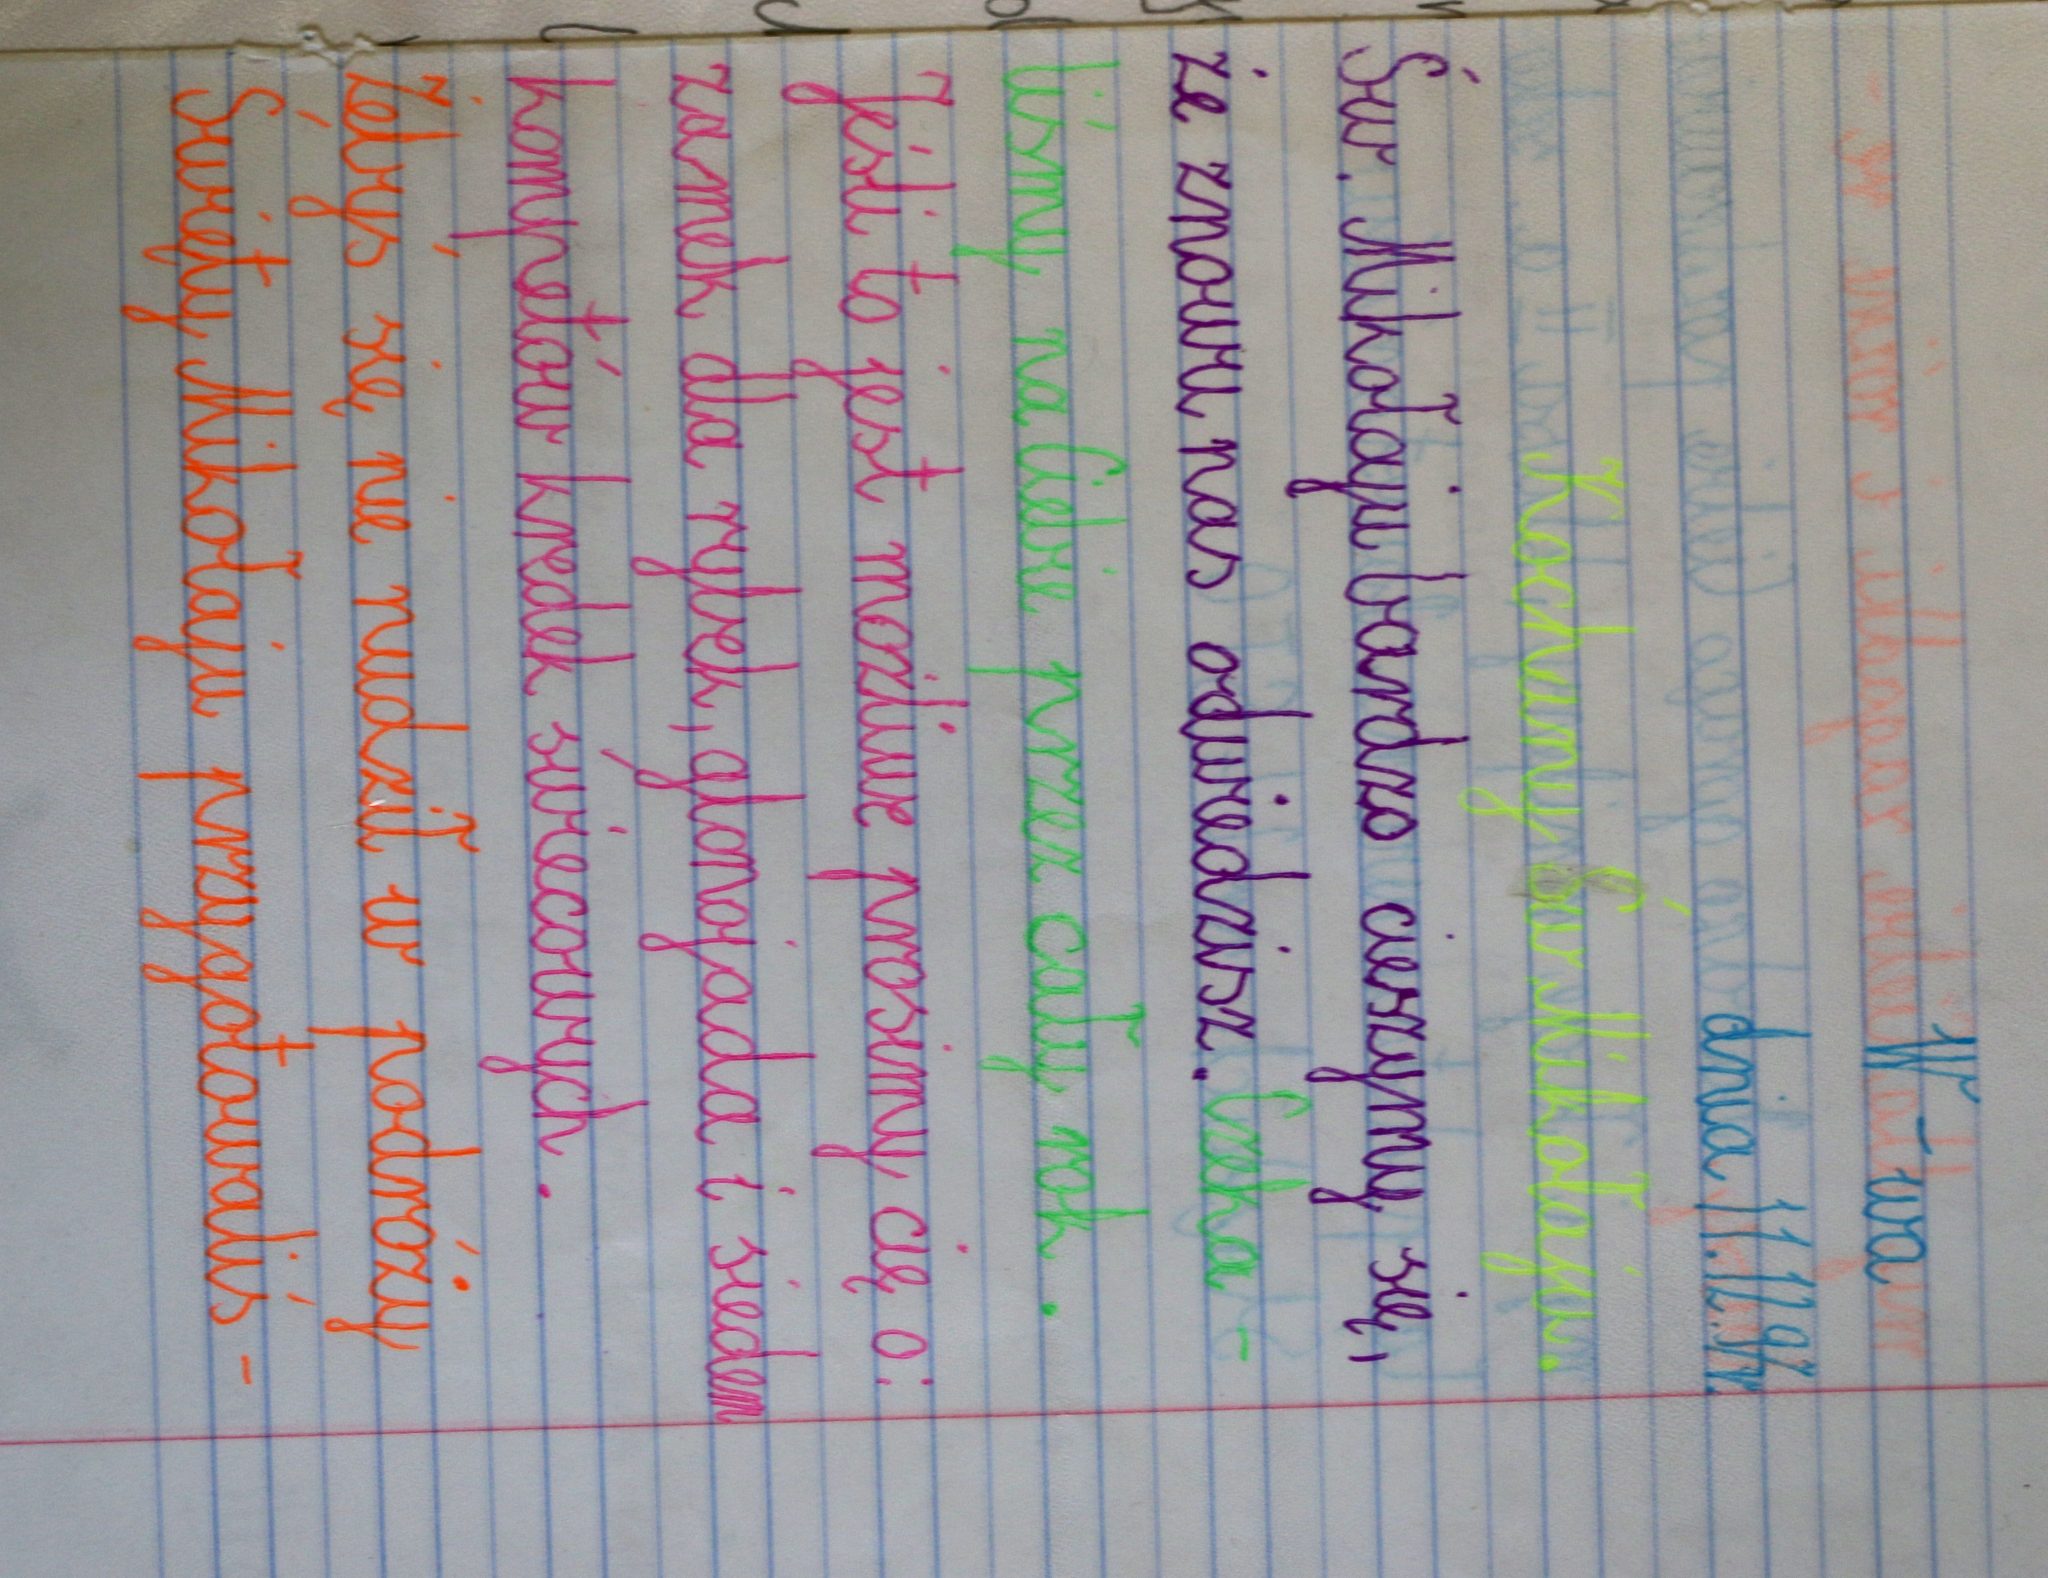 W-wa
dnia
Kochany Św. Mikołaju.
Św. Mikołaju bardzo cieszymy się,
że znowu nas odwiedzisz. Czeka-
liśmy na Ciebie przez cały rok.
Jeśli to jest możliwe prosimy cię o:
zamek dla rybek, glonojada i siedem
kompretów kredek świecowych.
Żebyś się nie nudził w podróży
Święty Mikołaju przygotowaliś-